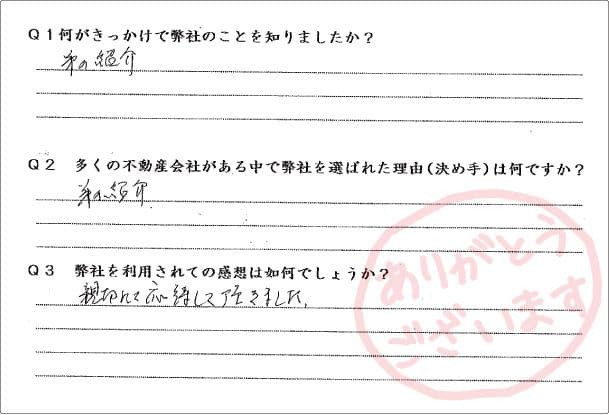 Q1何がきっかけで弊社のことを知りましたか?
弟の紹介
Q2 多くの不動産会社がある中で弊社を選ばれた理由(決め手)は何ですか?
弟の紹介
Q3 弊社を利用されての感想は如何でしょうか?
親切に応対して頂きました。
ありがとう
ございます